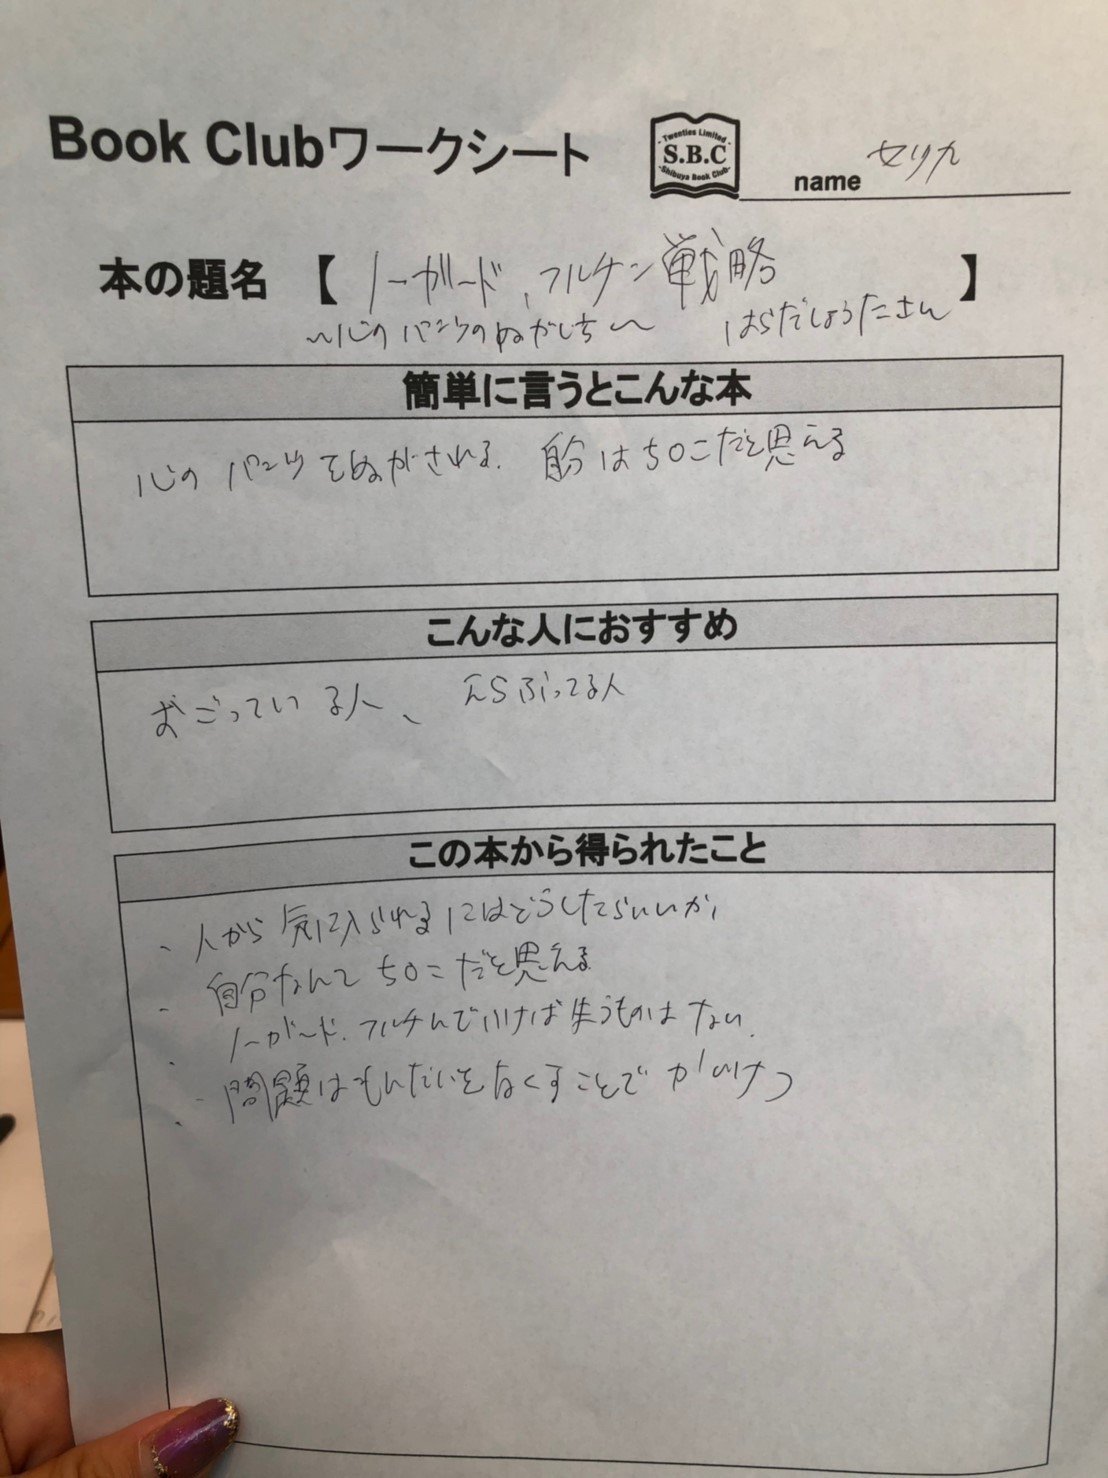 Book Clubワークシート
Twenties Limited
S.B.C
Shibuya Book Club
name セリカ
本の題名 【 ノーガード、フルチン戦略 】
〜心のパンツのぬがしち〜 はらだしょうたさん
簡単に言うとこんな本
心のパンツをぬがされる。自分はちOこだと思える
こんな人におすすめ
おごっている人、天らぶってる人
この本から得られたこと
・人から気に入られるにはどうしたらいいか、
・自分なんてちOこだと思える
・ノーガード、フルチんでいけば失うものはない。
・問題はもんだいをなくすことでかいけつ
・